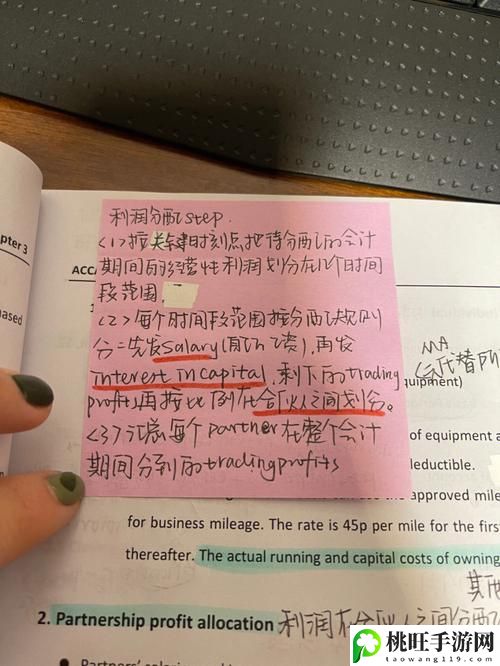 利润分配step.
<1>按关键时刻点,把待分配的会计
期间的经营性利润划分在几个时间
段范围
<2>每个时间段范围按分配规则
分=先发salary(员工工资),再发
interest in capital,剩下的trading
profits再按比例在合伙人之间划分。
<3>汇总每个partner在整个会计
期间分到的trading profits
pter 3
ACCA
ased
MA
quipment)
of equipment a
deductible.
approved mile
for business mileage. The rate is 45p per mile for the first
thereafter. The actual running and capital costs of owning
2. Partnership profit allocation 利润在合伙人之间分配
桃旺手游网
taowang119.com